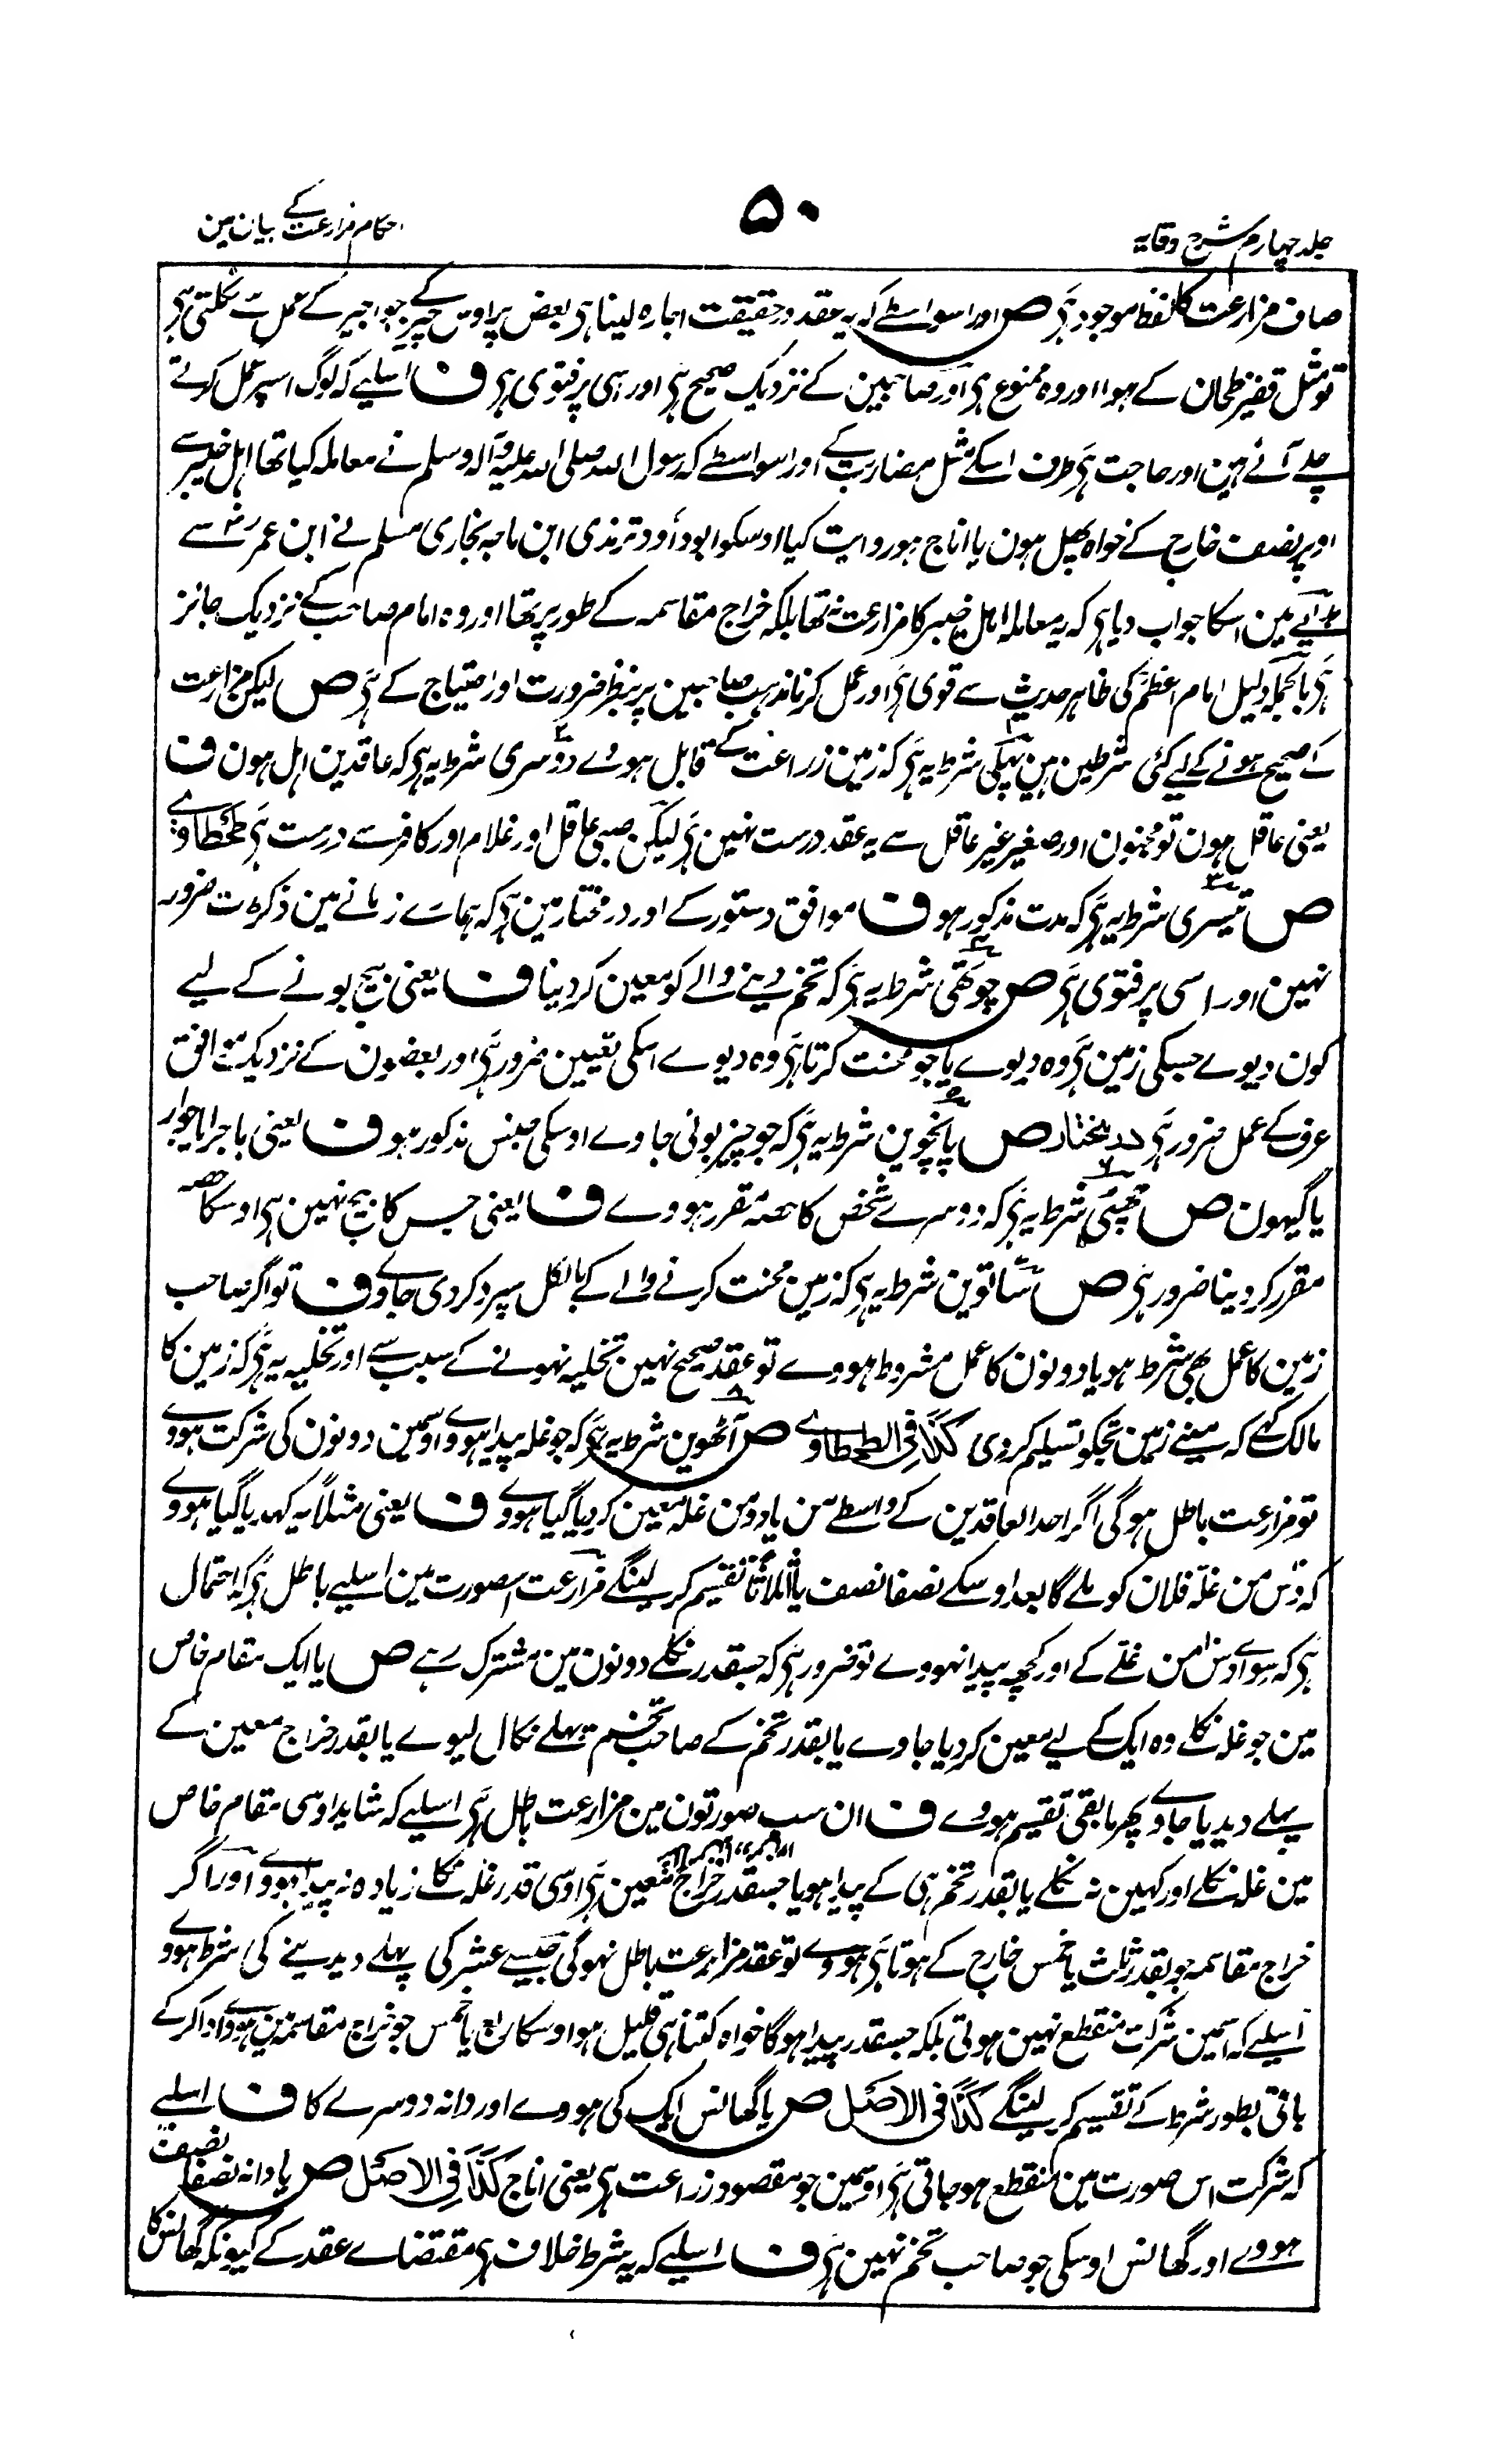 جلد چہارم شرح وقایہ
۵۰
احکام مزارعت کے بیان مین
صاف مزارعت کا لفظ موجود ہی ص اور اسواسطے کہ یہ عقد درحقیقت اجارہ لینا ہی بعض پر اوس چیز کے جو اجیر کے عمل سے نکلتی ہی
تو مثل قفیز طحان کے ہوا اور وہ ممنوع ہی اور صاحبین کے نزدیک صحیح ہی اور اسی پر فتوی ہی ف اسلیے کہ لوگ اسپر عمل کرتے
چلے آئے ہین اور حاجت ہی طرف اسکے مثل مضاربت کے اور اسواسطے کہ رسول اللہ صلی اللہ علیہ وآلہ وسلم نے معاملہ کیا تھا اہل خیبر سے
اوپر نصف خارج کے خواہ پھل ہون یا اناج ہو روایت کیا اوسکو ابو داؤد ترمذی ابن ماجہ بخاری مسلم نے ابن عمر رض سے
ہدایے مین اسکا جواب دیا ہی کہ یہ معاملہ اہل خیبر کا مزارعت نہ تھا بلکہ خراج مقاسمہ کے طور پر تھا اور وہ امام صاحب کے نزدیک جائز
ہی بالجملہ دلیل امام اعظم کی ظاہر حدیث سے قوی ہی اور عمل کرنا مذہب صاحبین پر بنظر ضرورت اور احتیاج کے ہی ص لیکن مزارعت
کے صحیح ہونے کے لیے کئی شرطین ہین پہلی شرط یہ ہی کہ زمین زراعت کے قابل ہووے دوسری شرط یہ ہی کہ عاقدین اہل ہون ف
یعنی عاقل ہون تو مجنون اور صغیر غیر عاقل سے یہ عقد درست نہین ہی لیکن صبی عاقل اور غلام اور کافر سے درست ہی طحطاوی
ص تیسری شرط یہ ہی کہ مدت مذکور ہو ف موافق دستور کے اور در مختار مین ہی کہ ہمارے زمانے مین ذکر مدت ضرور
نہین اور اسی پر فتوی ہی ص چوتھی شرط یہ ہی کہ تخم دینے والے کو معین کر دینا ف یعنی بیج بونے کے لیے
کون دیوے جسکی زمین ہی وہ دیوے یا جو محنت کرتا ہی وہ دیوے اسکی تعیین ضرور ہی اور بعضون کے نزدیک موافق
عرف کے عمل ضرور ہی در مختار ص پانچوین شرط یہ ہی کہ جو چیز بوئی جاوے اوسکی جنس مذکور ہو ف یعنی باجرا یا جوار
یا گیہون ص چھٹی شرط یہ ہی کہ دوسرے شخص کا حصہ مقرر ہووے ف یعنی جس کا بیج نہین ہی اوسکا حصہ
مقرر کر دینا ضرور ہی ص ساتوین شرط یہ ہی کہ زمین محنت کرنے والے کے بالکل سپرد کر دی جاوے ف تو اگر صاحب
زمین کا عمل بھی شرط ہو یا دونون کا عمل مشروط ہووے تو عقد صحیح نہین تخلیہ نہونے کے سبب سے اور تخلیہ یہ ہی کہ زمین کا
مالک کہے کہ مینے زمین تجکو تسلیم کردی کذا فی الطحطاوی ص آٹھوین شرط یہ ہی کہ جو غلہ پیدا ہووے اوسمین دونون کی شرکت ہووے
تو مزارعت باطل ہوگی اگر احد العاقدین کے واسطے من یا دو من غلہ معین کر دیا گیا ہووے ف یعنی مثلاً یہ کہدیا گیا ہووے
کہ دس من غلہ فلان کو ملے گا بعد اوسکے نصفا نصف یا اثلاثا تقسیم کر لینگے مزارعت اسصورت مین اسلیے باطل ہی کہ احتمال
ہی کہ سواے دس من غلے کے اور کچھ پیدا نہووے تو ضرور ہی کہ جسقدر نکلے دونون مین مشترک رہے ص یا ایک مقام خاص
مین جو غلہ نکلے وہ ایک کے لیے معین کر دیا جاوے یا بقدر تخم کے صاحب تخم پہلے نکال لیوے یا بقدر خراج معین کے
پہلے دیدیا جاوے پھر مابقی تقسیم ہووے ف ان سب صورتون مین مزارعت باطل ہی اسلیے کہ شاید اوسی مقام خاص
مین غلہ نکلے اور کہین نہ نکلے یا بقدر تخم ہی کے پیدا ہو یا جسقدر خراج معین ہی اوسی قدر غلہ نکلے زیادہ نہ پیدا ہووے اور اگر
خراج مقاسمہ جو بقدر ثلث یا خمس خارج کے ہوتا ہی ہووے تو عقد مزارعت باطل نہوگی جیسے عشر کی پہلے دیدینے کی شرط ہووے
اسلیے کہ اسمین شرکت منقطع نہین ہوتی بلکہ جسقدر پیدا ہوگا خواہ کتنا ہی قلیل ہو اوسکا ربع یا خمس جو خراج مقاسمہ مین ہووے ادا کرکے
باقی بطور شرط کے تقسیم کر لینگے کذا فی الاصل ص یا گھانس ایک کی ہووے اور دانہ دوسرے کا ف اسلیے
کہ شرکت اس صورت مین منقطع ہو جاتی ہی اوسمین جو مقصود زراعت ہی یعنی اناج کذا فی الاصل ص یا دانہ نصفا نصف
ہووے اور گھانس اوسکی جو صاحب تخم نہین ہی ف اسلیے کہ یہ شرط خلاف ہی مقتضاے عقد کے کیونکہ گھانس کا